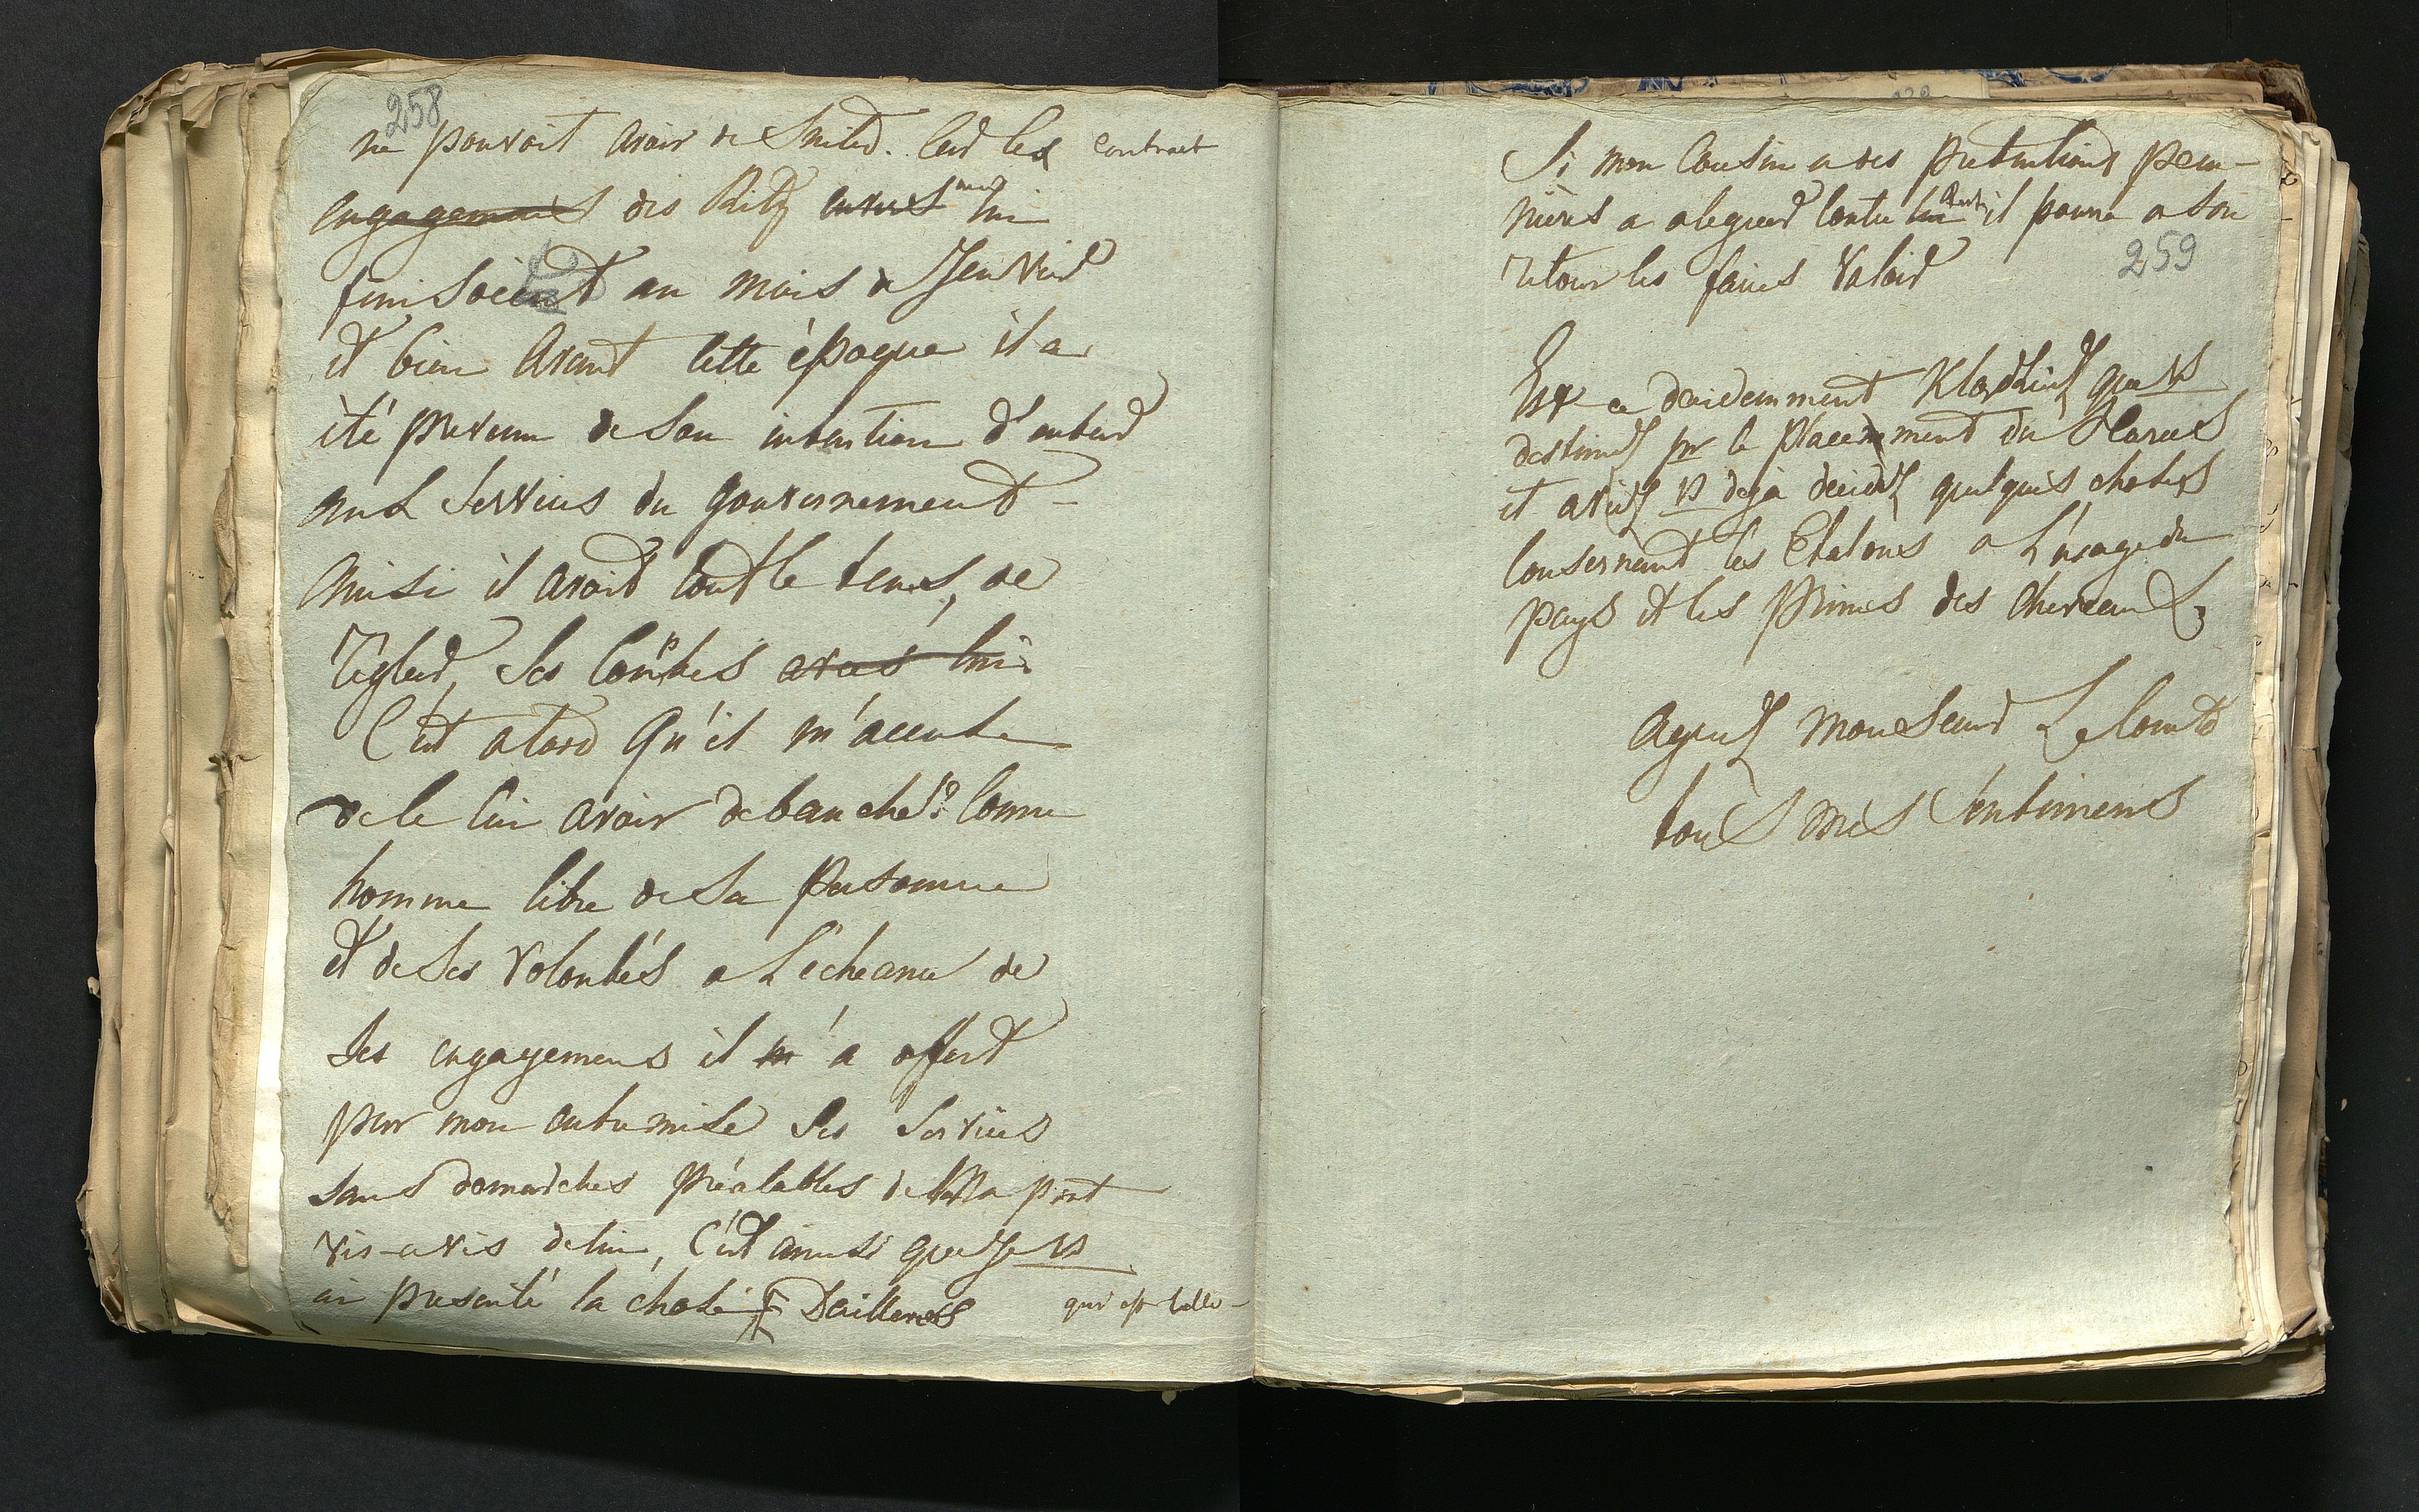 258
ne pouvoit avoir de Suites. Car les contract
engagements des Ritz envers lui
finisoient au mois de Janvier
et bien avant cette époque il a
été prevenu de son intention d'entrer
aux services du gouvernement -
Ainsi il avoit tout le tems, de
regler, ses comptes avec lui.
C'est a tord qu'il m'accuse
de le lui avoir debauché. Comme
homme libre de sa personne
et de ses volontés a L'echeance de
ses engagemens il m'a offert
par mon entremise ses services
sans demarches préalables de Ma part
vis-a-vis de lui, C'est ainsi que Je vs
ai presenté la chose. D'ailleurs qui est telle-
Si mon Cousin a des pretentions pecu-
nières a aleguer contre lui il pourra a son
retour les faires Valoir
259
Est ce decidemment que vs
destinez pr le placement du Haras
et aviez vs deja decidez quelques choses
Consernant les Etalons a L'usage du
pays et les Primes des chevaux
Agreez Monsieur Le Comte
tous mes Sentimens